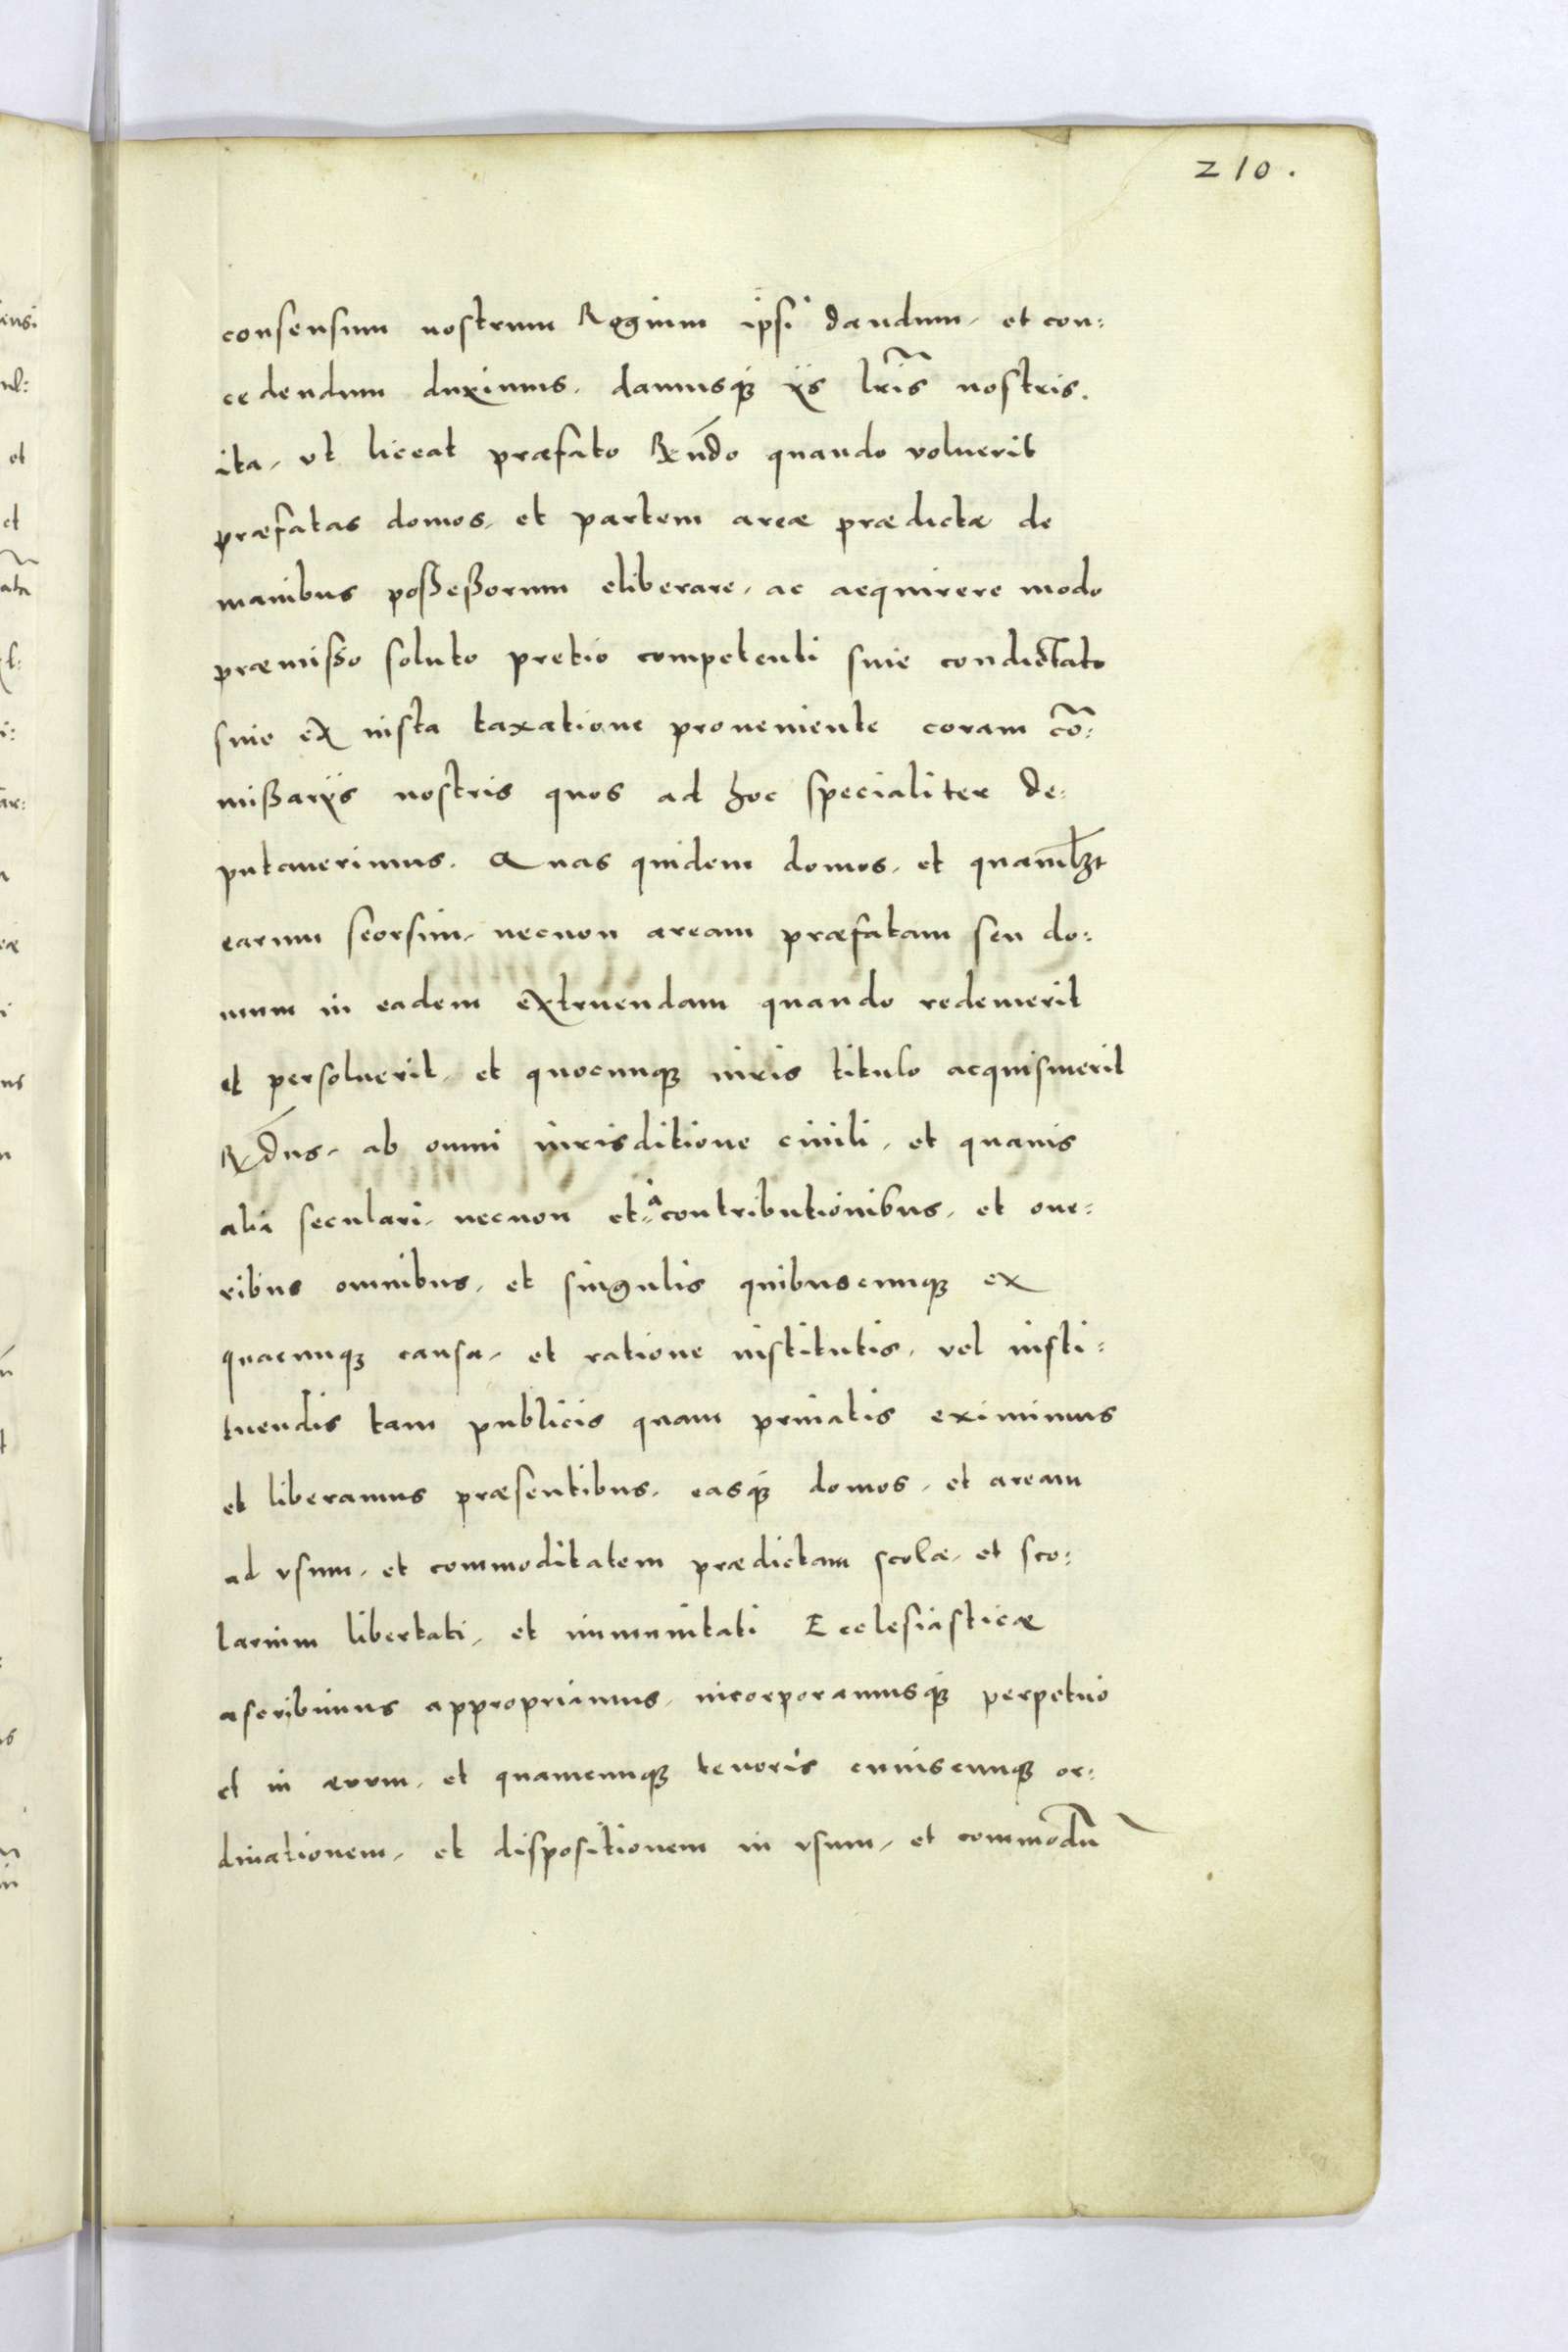 210.
consensum nostrum Regium ipsi dandum, et con:
cedendum duximus. damusq3 ijs lr̃is nostris.
ita, vt liceat præfato Rndo quando voluerit
præfatas domos, et partem areæ prædictæ de
manibus poßeßorum eliberare, ac acquirere modo
præmißo soluto pretio competenti siue condictato
siue ex iusta taxatione proueniente coram cõ:
mißarijs nostris quos ad hoc specialiter de:
putauerimus. Quas quidem domos, et quamlʒt
earum seorsim, necnon aream præfatam seu do:
mum in eadem extruendam quando redemerit
et persoluerit, et quocunq3 iuris titulo acquisiuerit
Rdus, ab omni iurisditione ciuili, et quauis
alia seculari, necnon et à contributionibus, et one:
ribus omnibus, et singulis quibuscunq3 ex
quacunq3 causa, et ratione institutis, vel insti:
tuendis tam publicis quam priuatis eximimus
et liberamus præsentibus, easq3 domos, et aream
ad vsum, et commoditatem prædictam scolæ, et sco:
larium libertati, et immunitati Ecclesiasticæ
ascribimus appropriamus, incorporamusq3 perpetuo
et in æuum, et quamcunq3 tenoris cuiuscunq3 or:
dinationem, et dispositionem in vsum, et commodũ